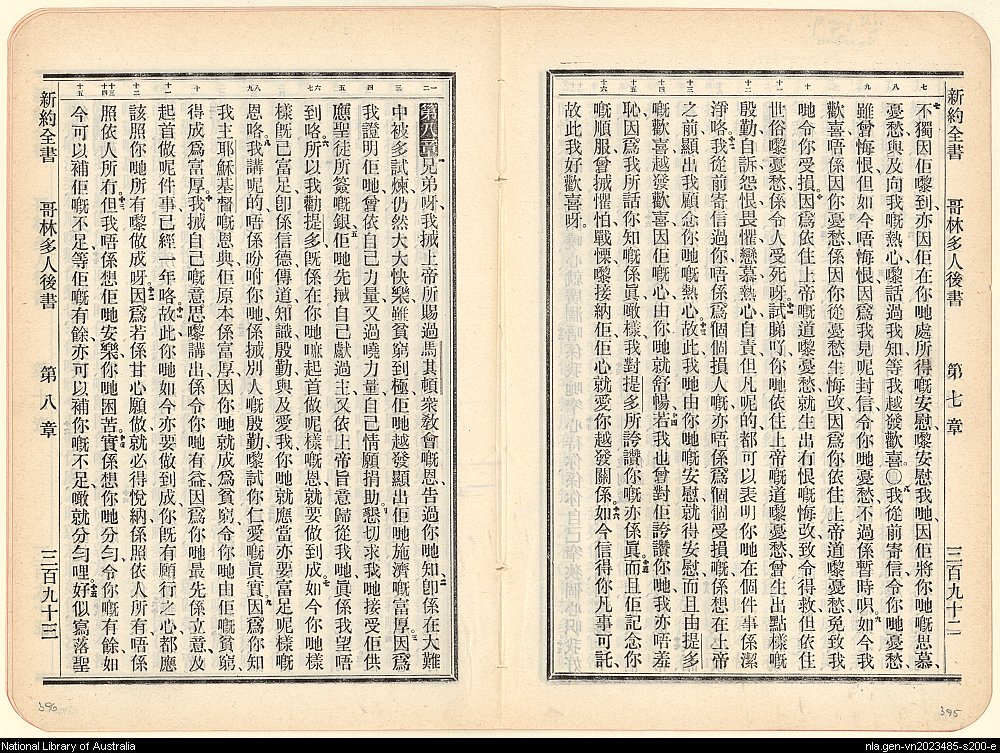 新約全書 哥林多人後書 第七章 三百九十二
七 八 九 十 十一 十二 十三 十四 十五 十六
不獨因佢嚟到亦因佢在你哋處所得嘅安慰嚟安慰我哋因佢將你哋嘅思慕
憂愁與及向我嘅熱心嚟話過我知等我越發歡喜〇我從前寄信令你哋憂愁
雖曾悔恨但如今唔悔恨因爲我見呢封信令你哋憂愁不過係暫時呮如今我
歡喜唔係因你憂愁係因你從憂愁生悔改因爲你依住上帝道嚟憂愁免致我
哋令你受損因爲依住上帝嘅道嚟憂愁就生出冇恨嘅悔改致令得救但依住
世俗嚟憂愁係令人受死呀試睇吓你哋依住上帝嘅道嚟憂愁曾生出點樣嘅
殷勤自訴怨恨畏懼戀慕熱心自責但凡呢的都可以表明你哋在個件事係潔
淨咯我從前寄信過你唔係爲個個損人嘅亦唔係爲個個受損嘅係想在上帝
之前顯出我顧念你哋嘅熱心故此我哋由你哋安慰就得安慰而且由提多
嘅歡喜越發歡喜因佢嘅心由你哋就舒暢若我也曾對佢誇讚你哋我亦唔羞
恥因爲我所話你知嘅係眞噉樣我對提多所誇讚你嘅亦係眞而且佢記念你
嘅順服曾㨢懼怕戰慄嚟接納佢佢心就愛你越發關係如今信得你凡事可託
故此我好歡喜呀
一二 三 四 五 六七 八九 十 十一 十二 十三十四 十五
第八章 兄弟呀我㨢上帝所賜過馬其頓衆敎會嘅恩告過你哋知卽係在大難
中被多試煉仍然大大快樂雖貧窮到極佢哋越發顯出佢哋施濟嘅富厚因爲
我證明佢哋曾依自己力量又過曉力量自己情願捐助懇切求我哋接受佢供
應聖徒所簽嘅銀佢哋先㨢自己獻過主又依上帝旨意歸從我哋眞係我望唔
到咯所以我勸提多旣係在你哋嚟起首做呢樣嘅恩就要做到成如今你哋樣
樣旣已富足卽係信德傳道知識殷勤與及愛我你哋就應當亦要富足呢樣嘅
恩咯我講呢的唔係吩咐你哋係㨢別人嘅殷勤嚟試你仁愛嘅眞實因爲你知
我主耶穌基督嘅恩典佢原本係富厚因你哋就成爲貧窮令你哋由佢嘅貧窮
得成爲富厚我㨢自己嘅意思嚟講出係令你哋有益因爲你哋最先係立意及
起首做呢件事已經一年咯故此你哋如今亦要做到成你旣有願行之心都應
該照依你哋所有嚟做成呀因爲若係甘心願做就必得悅納係照依人所有唔係
照依人所冇但我唔係想佢哋安樂你哋困苦實係想你哋分勻令你嘅有餘如
今可以補佢嘅不足等佢嘅有餘亦可以補你嘅不足噉就分勻哩好似寫落聖
新約全書 哥林多人後書 第八章 三百九十三
396
395
National Library of Australia
nla.gen-vn2023485-s200-e